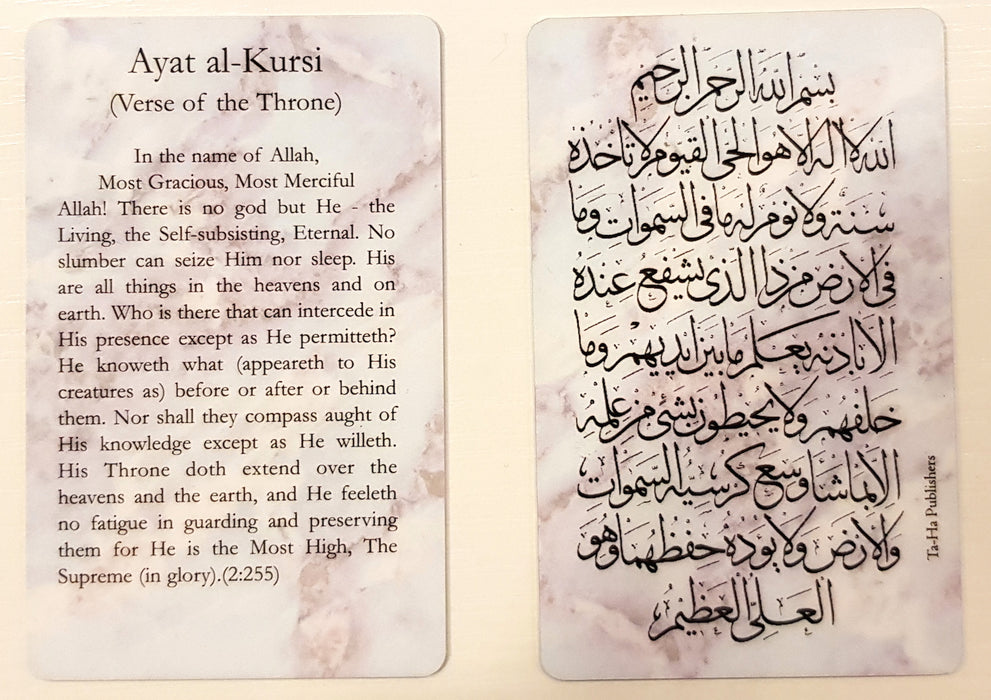 Ayat al-Kursi
(Verse of the Throne)
In the name of Allah,
Most Gracious, Most Merciful
Allah! There is no god but He - the
Living, the Self-subsisting, Eternal. No
slumber can seize Him nor sleep. His
are all things in the heavens and on
earth. Who is there that can intercede in
His presence except as He permitteth?
He knoweth what (appeareth to His
creatures as) before or after or behind
them. Nor shall they compass aught of
His knowledge except as He willeth.
His Throne doth extend over the
heavens and the earth, and He feeleth
no fatigue in guarding and preserving
them for He is the Most High, The
Supreme (in glory).(2:255)
بسم الله الرحمن الرحيم
الله لا اله الا هو الحي القيوم لا تاخذه
سنة ولا نوم له ما في السموات وما
في الارض من ذا الذي يشفع عنده
الا باذنه يعلم ما بين ايديهم وما
خلفهم ولا يحيطون بشئ من علمه
الا بما شا وسع كرسيه السموات
والارض ولا يوده حفظهما وهو
العلي العظيم
Ta-Ha Publishers